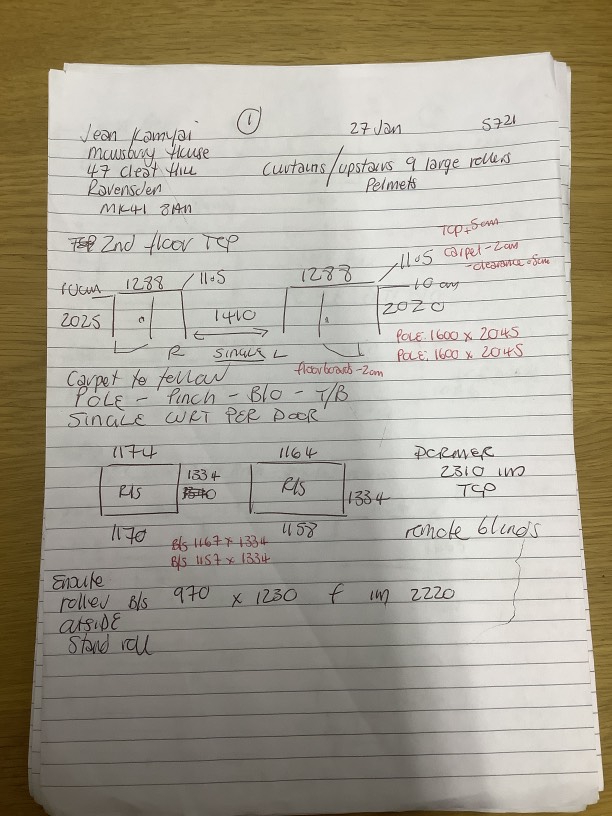 ①
27 Jan
S721
Jean Kamyai
Mowsbury House
47 Cleat Hill
Ravensden
MK41 8AN
Curtains/upstairs 9 large rollers
Pelmets
2nd floor TCP
Top + 5cm
carpet - 2cm
- clearance
10cm 1288 1105
2025
1410
1288 1105
10 cm
2020
R SINGLE L
POLE: 1600 x 2045
POLE: 1600 x 2045
floorboards - 2cm
Carpet to follow
POLE - Pinch - B/O - T/B
SINGLE CURT PER DOOR
1174
R/S
1334
1170
1164
R/S
1334
1158
DORMER
2310 im
TCP
B/s 1167 x 1334
B/s 1157 x 1334
remote blinds
Ensuite
roller B/s 970 x 1230 f im 2220
Stand roll